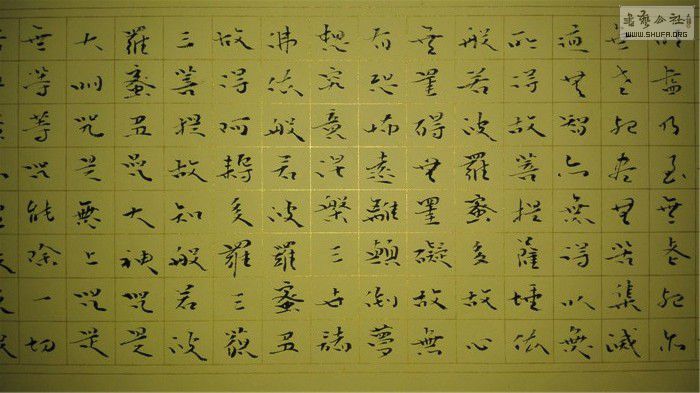 明盡乃至無老死亦
無老死盡無苦集滅
道無智亦無得以無
所得故菩提薩埵依
般若波羅蜜多故心
無罣礙無罣礙故無
有恐怖遠離顛倒夢
想究竟涅槃三世諸
佛依般若波羅蜜多
故得阿耨多羅三藐
三菩提故知般若波
羅蜜多是大神咒是
大明咒是無上咒是
無等等咒能除一切
WWW.SHUFA.ORG